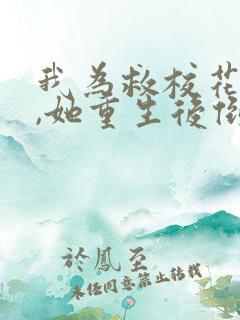 我為救校花
,她重生後
於鳳至
未经同意禁止转载